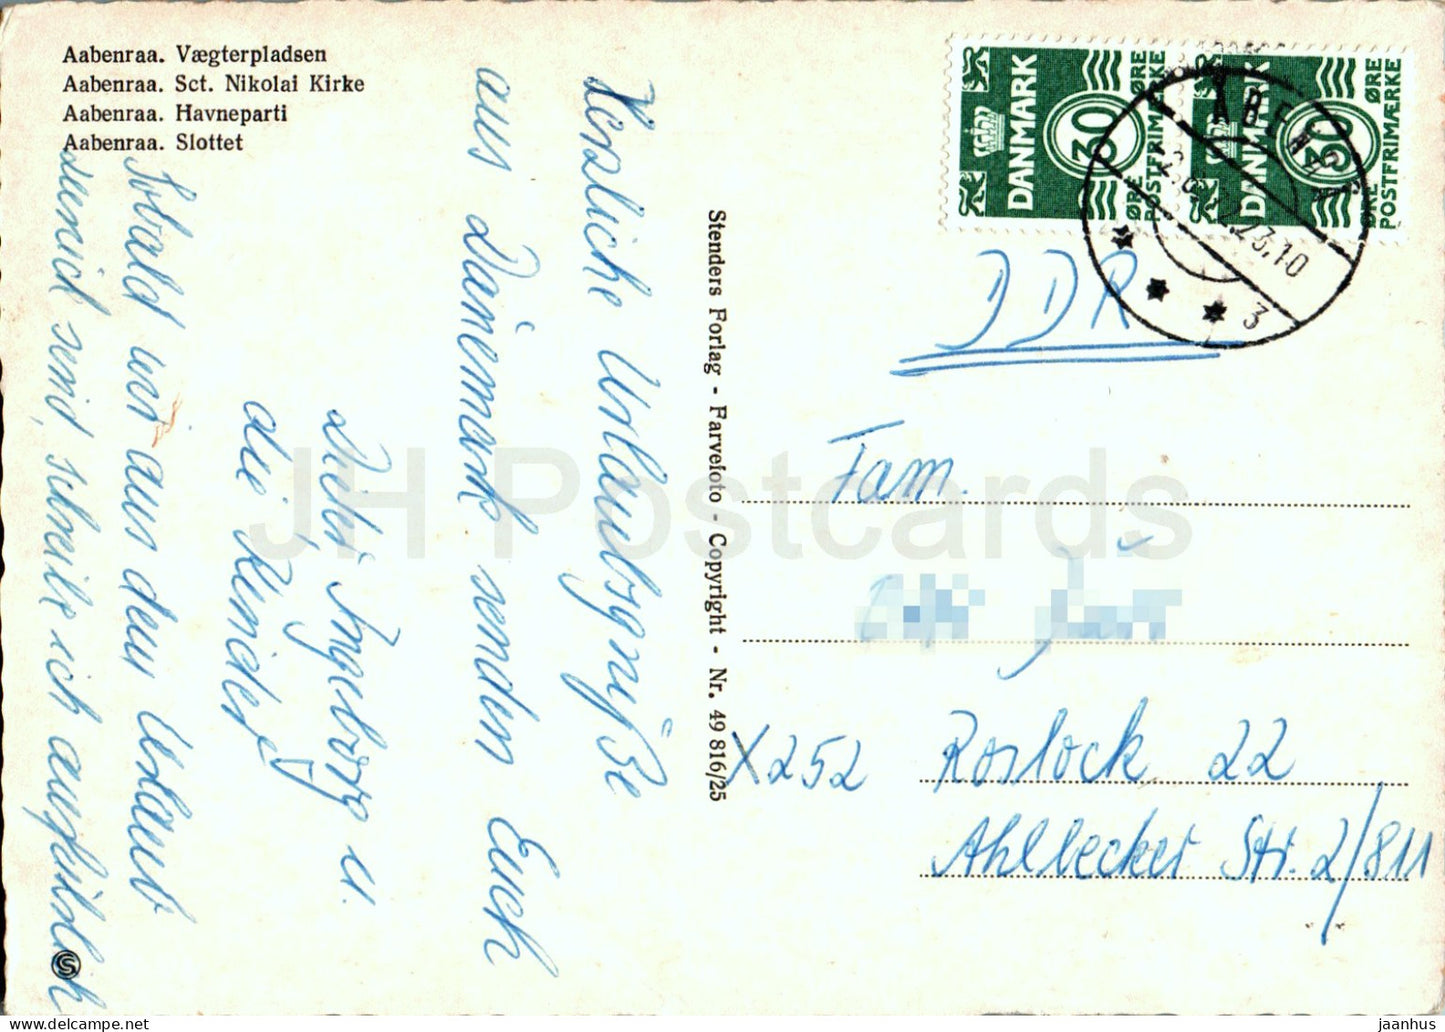 Aabenraa. Vægterpladsen
Aabenraa. Sct. Nikolai Kirke
Aabenraa. Havneparti
Aabenraa. Slottet
Herzliche Urlaubsgrüße
aus Dänemark senden Euch
Ingeborg u.
die Kinder
Sobald wir aus dem Urlaub
zurück sind, schreibe ich ausführlich
Stenders Forlag - Farvefoto - Copyright - Nr. 49 816/25
DANMARK
30
ØRE
ØRE
POSTFRIMÆRKE
DANMARK
30
ØRE
ØRE
POSTFRIMÆRKE
3
DDR
Fam.
X252 Rostock 22
Ahlbecker Str. 2/811
JH Postcards
S
jaanhus__ - delcampe.net